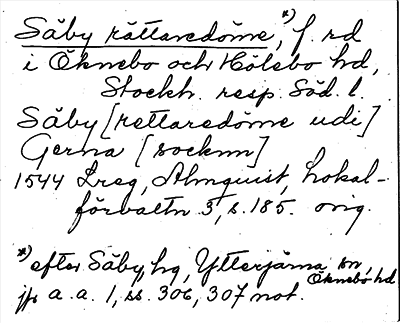 Säby rättaredöme, *) f. rd
i Öknebo och Hölebo hd,
Stockh. resp. Söd. l.
Säby [rettaredöme udi]
Gerna [socknn]
1544 Lreg, Almquist, Lokal-
förvaltn 3, s. 185. orig.
*) efter Säby, hg, Ytterjärna sn
Öknebo hd
jfr a. a. 1, ss. 306, 307 not.